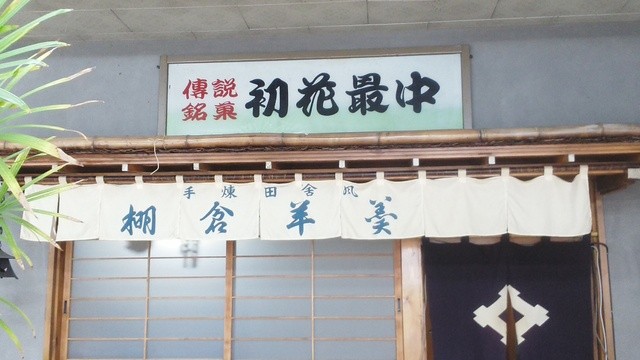 傳説
銘菓
初花最中
手煉田舎風
棚倉羊羹